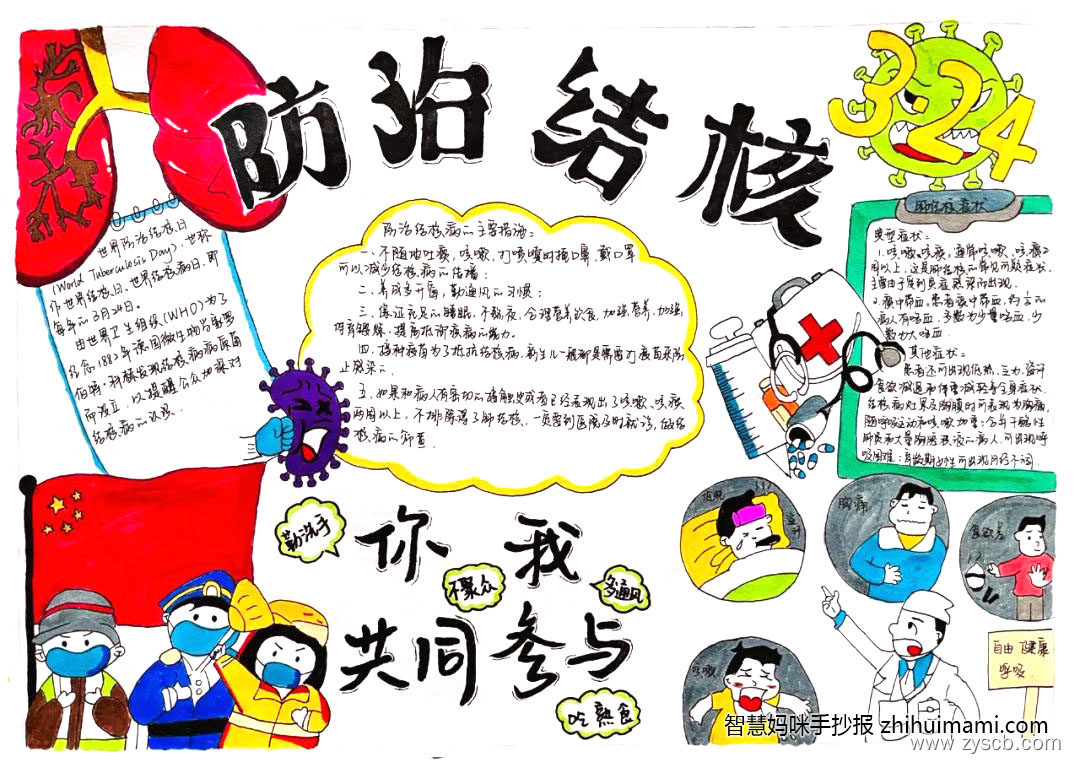 防治结核
324
世界防治结核病日
(World Tuberculosis Day),也称
作世界结核日、世界结核病日,即
每年的3月24日。
由世界卫生组织(WHO)为了
纪念1882年德国微生物学家罗
伯特·科赫发现结核病病原菌
所设立,以提醒公众加深对
结核病的认识。
防治结核病的主要措施:
一、不随地吐痰,咳嗽、打喷嚏时掩口鼻,戴口罩
可以减少结核病的传播;
二、养成多开窗,勤通风的习惯;
三、保证充足的睡眠,不熬夜,合理营养饮食,加强营养,加强
体育锻炼,提高抵御疾病的能力。
四、接种疫苗为了抵抗结核病,新生儿一般都是需要打疫苗来防
止感染。
五、如果和病人有密切的接触史或者已经表现出了咳嗽、咳痰
两周以上,不排除得了肺结核,一定要到医院及时就诊,做结
核病的筛查。
肺结核症状
典型症状:
1.咳嗽、咳痰,通常咳嗽、咳痰2
周以上,这是肺结核的常见可疑症状,
主要由于受到炎症感染而出现。
2.痰中带血,患者痰中带血,约⅓的
病人有咯血,多数为少量咯血,少
数为大咯血
其他症状:
患者还可出现低热、乏力、盗汗
食欲减退和体重减轻等全身症状,
结核病灶累及胸膜时可表现为胸痛,
随呼吸运动和咳嗽加重;合并干酪性
肺炎和大量胸腔积液的病人,可出现呼
吸困难;育龄期女性可出现月经不调
勤洗手
不聚众
多通风
吃熟食
你我
共同参与
低热
盗汗
胸痛
食欲差
咳嗽
自由 健康
呼吸
智慧妈咪手抄报 zhihuimami.com
www.zyscb.com